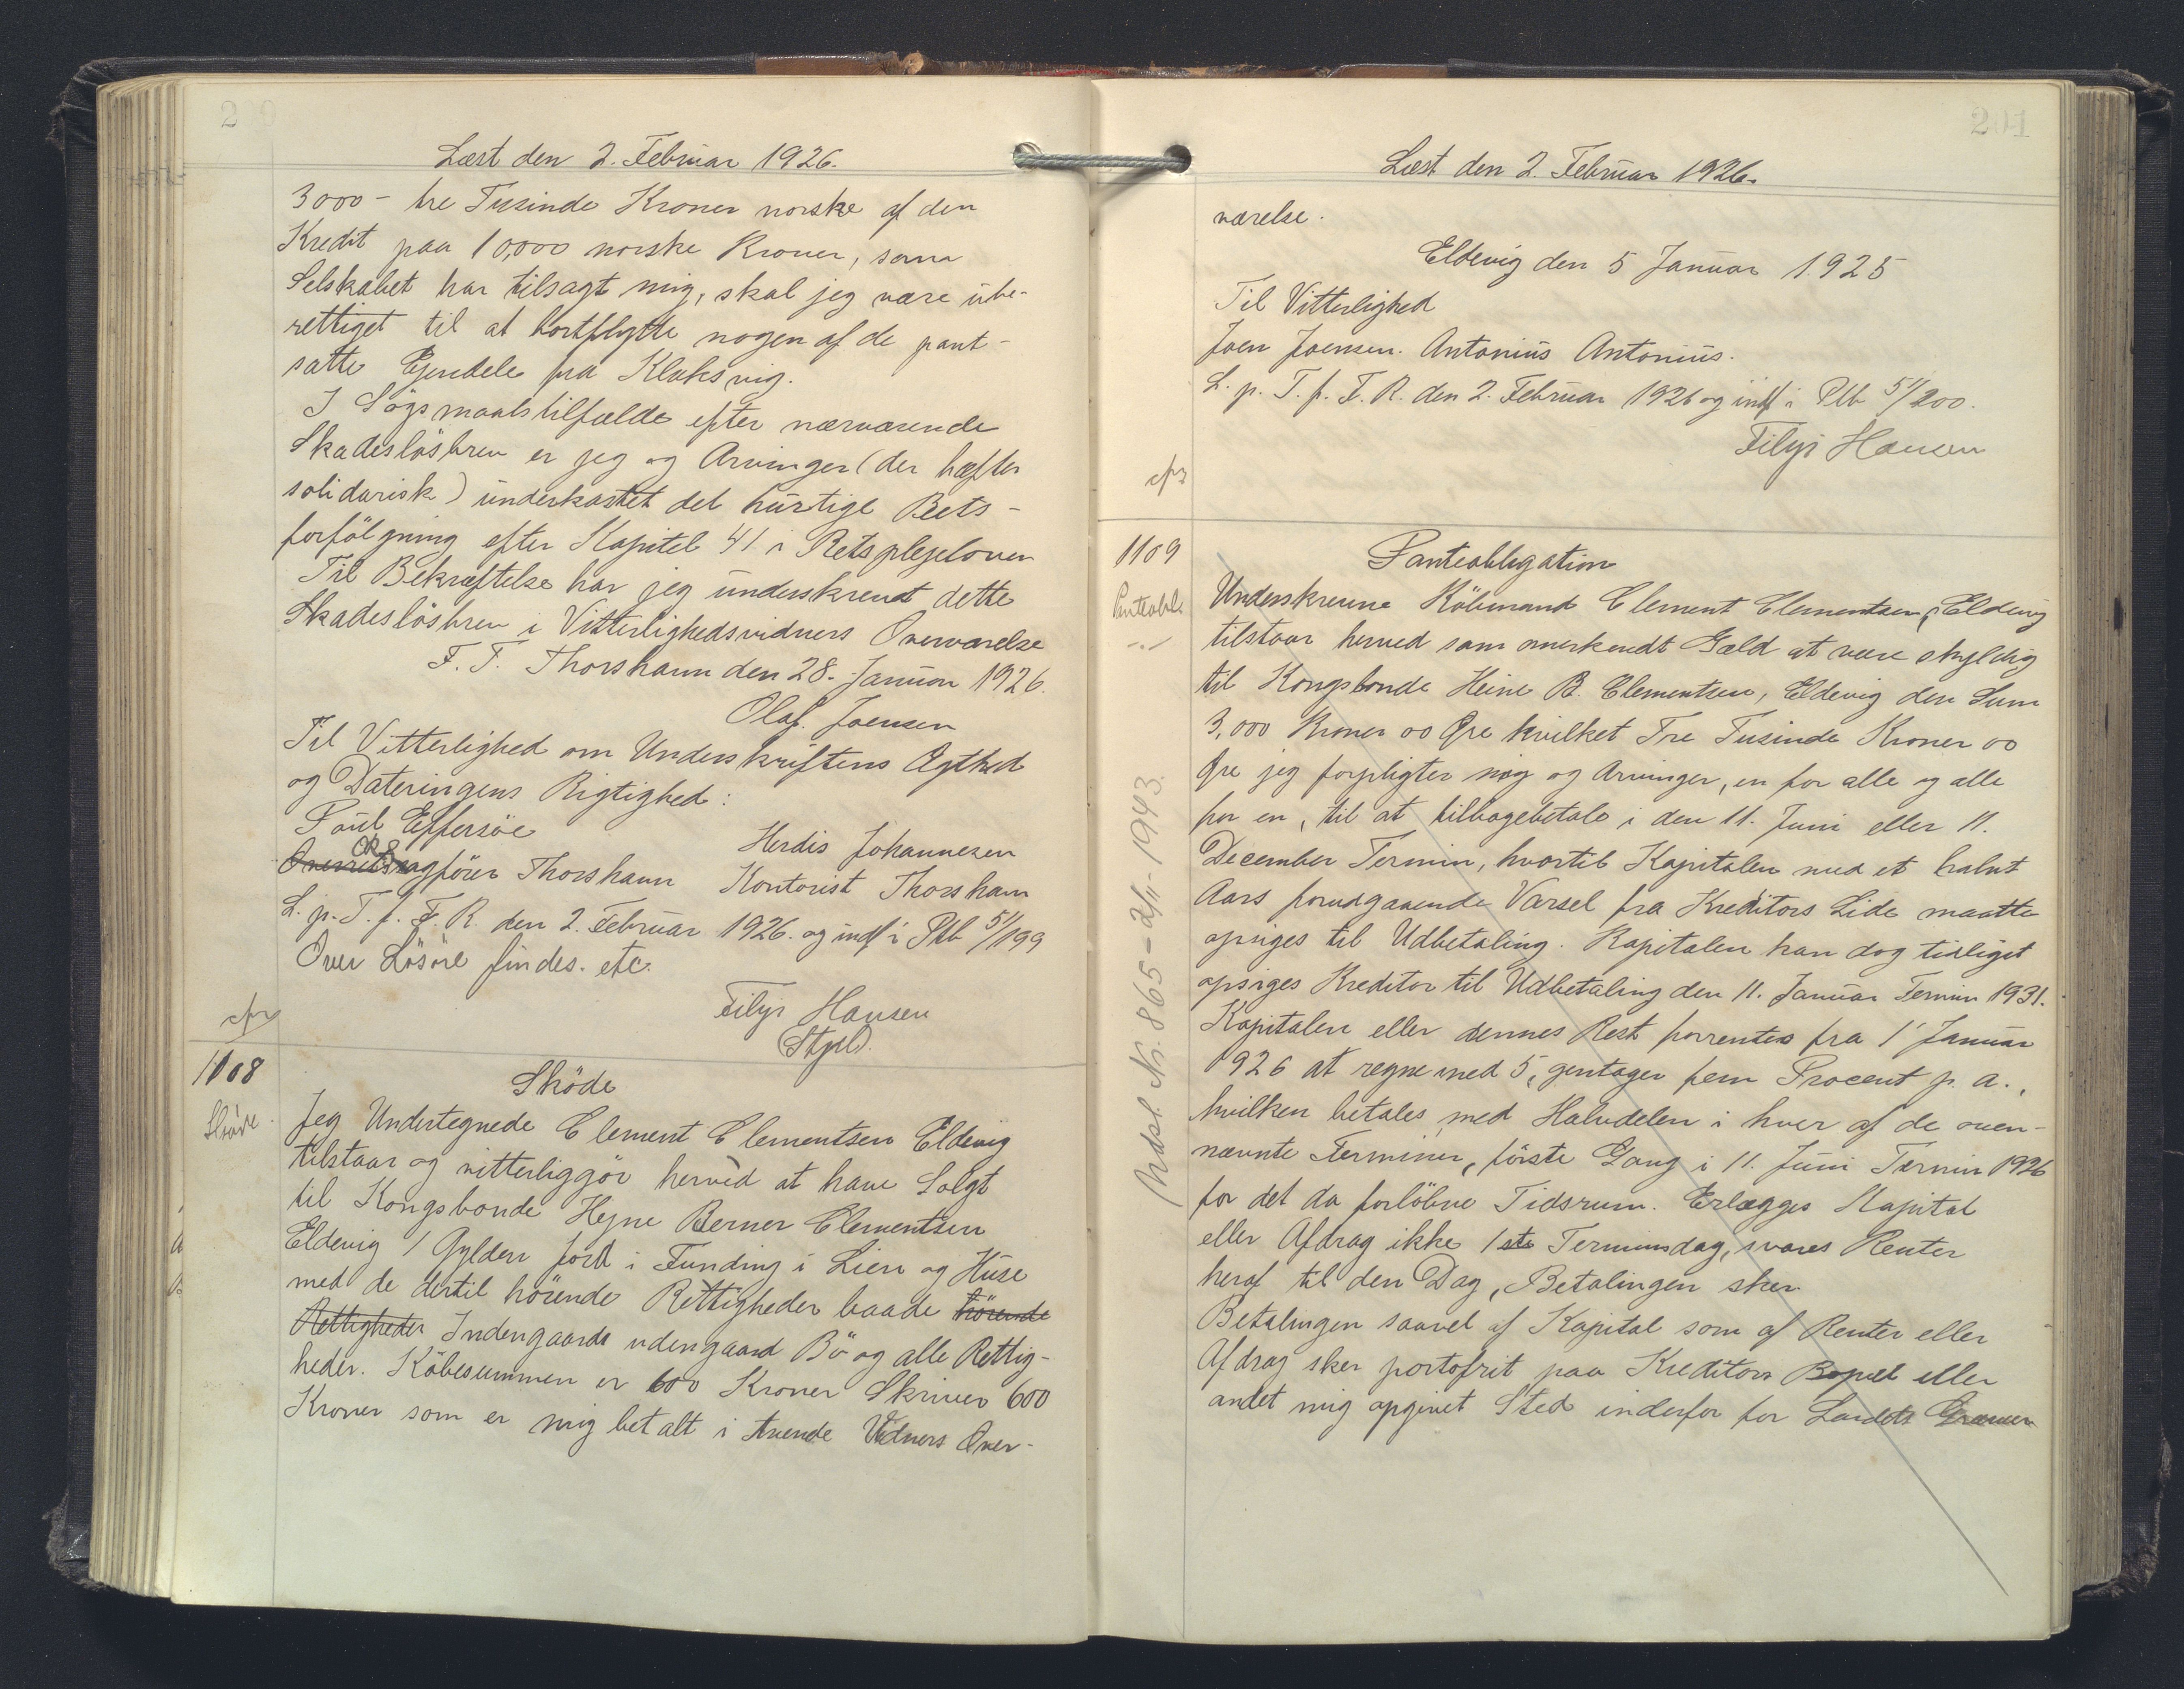 200
Læst den 2. Februar 1926.
3000 - tre Tusinde Kroner norske af den
Kredit paa 10,000 norske Kroner, som
Selskabet har tilsagt mig, skal jeg være ube-
rettiget til at bortflytte nogen af de pant-
satte Ejendele fra Klaksvig.
I Sögsmaalstilfælde efter nærværende
Skadeslösbrev er jeg og Arvinger (der hæfter
solidarisk) underkastet det hurtige Rets-
forfölgning efter Kapitel 41 i Retsplejeloven
Til Bekræftelse har jeg underskrevet dette
Skadeslösbrev i Vitterlighedsvidners Overværelse
F. T. Thorshavn den 28. Januar 1926.
Olaf. Joensen
Til Vitterlighed om Underskriftens Ægthed
og Dateringens Rigtighed:
Poul Effersöe
Herdis Johannesen
ORS
Overretssagförer Thorshavn Kontorist Thorshavn
L. p. T. f. F. R. den 2. Februar 1926. og indf i Ptb 51/199
Over Lösöre findes. etc.
Filip Hansen
Stpl.
1108
Sköde
Sköde
Jeg Undertegnede Clement Clementsen Eldevig
tilstaar og vitterliggör herved at have Solgt
til Kongsbonde Hejne Berner Clementsen
Eldevig 1 Gylden jord i Funding i Lien og Huse
med de dertil hörende Rettigheder baade hörende
Rettigheder Indengaards udengaard Bö og alle Rettig-
heder. Köbesummen er 600 Kroner Skriver 600
Kroner som er mig betalt i tvende Vidners Over-
201
Læst den 2. Februar 1926.
værelse.
Eldevig den 5 Januar 1925
Til Vitterlighed
Joen Joensen. Antonius Antonius.
L. p. T. f. F. R. den 2. Februar 1926 og indf i Ptb 51/200.
Filip Hansen
1109
Panteobl.
Panteobligation
Underskrevne Köbmand Clement Clementsen, Eldevig
tilstaar herved som anerkendt Gæld at være skyldig
til Kongsbonde Heine B. Clementsen, Eldevig den Sum
3,000 Kroner 00 Øre hvilket Tre Tusinde Kroner 00
Øre jeg forpligter mig og Arvinger, en for alle og alle
for en, til at tilbagebetale i den 11. Juni eller 11.
December Termin, hvortil Kapitalen med et halvt
Aars forudgaaende Varsel fra Kreditors Side maatte
opsiges til Udbetaling. Kapitalen kan dog tidligst
opsiges Kreditor til Udbetaling den 11. Januar Termin 1931.
Kapitalen eller dennes Rest forrentes fra 1' Januar
1926 at regne med 5, gentager fem Procent p. a.,
hvilken betales med Halvdelen i hver af de oven-
nævnte Terminer, förste Gang i 11. Juni Termin 1926
for det da forlöbne Tidsrum. Erlægges Kapital
eller Afdrag ikke 1ste Terminsdag, svares Renter
heraf til den Dag, Betalingen sker.
Betalingen saavel af Kapital som af Renter eller
Afdrag sker portofrit paa Kreditors Bopæl eller
andet mig opgivet Sted inderfor for Landets Grænser
Udsl. Nr. 865 - 2/11 - 1943.